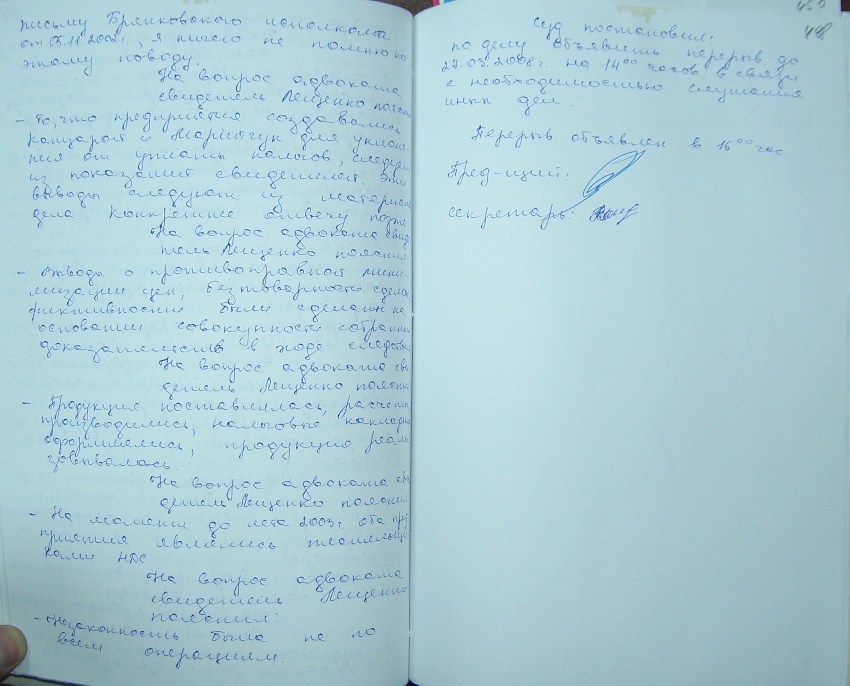 письму Брянковского исполкома
от 05.11.2002г., я ничего не помню по
этому поводу.
На вопрос адвоката
свидетель Лещенко поясн
- То, что предприятия создавались
и для уклоне
ния от уплаты налогов, следует
из показаний свидетелей. Эти
выводы следуют из материал
дела. Конкретнее отвечу позже
На вопрос адвоката свид
тель Лещенко пояснил
- Выводы о противоправной мини
мизации цен, безтоварности сделок
фиктивности были сделаны на
основании совокупности собранных
доказательств в ходе следствия
На вопрос адвоката сви
детель Лещенко пояснил
- Продукция поставлялась, расчеты
производились, налоговые накладн
оформлялись, продукция реали
зовывалась.
На вопрос адвоката сви
детель Лещенко пояснил
- На момент до лета 2003г. оба пред
приятия являлись плательщи
ками НДС
На вопрос адвоката
свидетель Лещенко
пояснил:
- Незаконность была не по
всем операциям.
450
448
Суд постановил:
по делу объявить перерыв до
на 14 00 часов в связи
с необходимостью слушания
иных дел.
Перерыв объявлен в 16 00 час
Пред-щий:
секретарь: